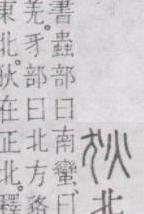 狄北
書蟲部曰南蠻、
羌。豸部曰北方貉
東北。狄在正北。釋